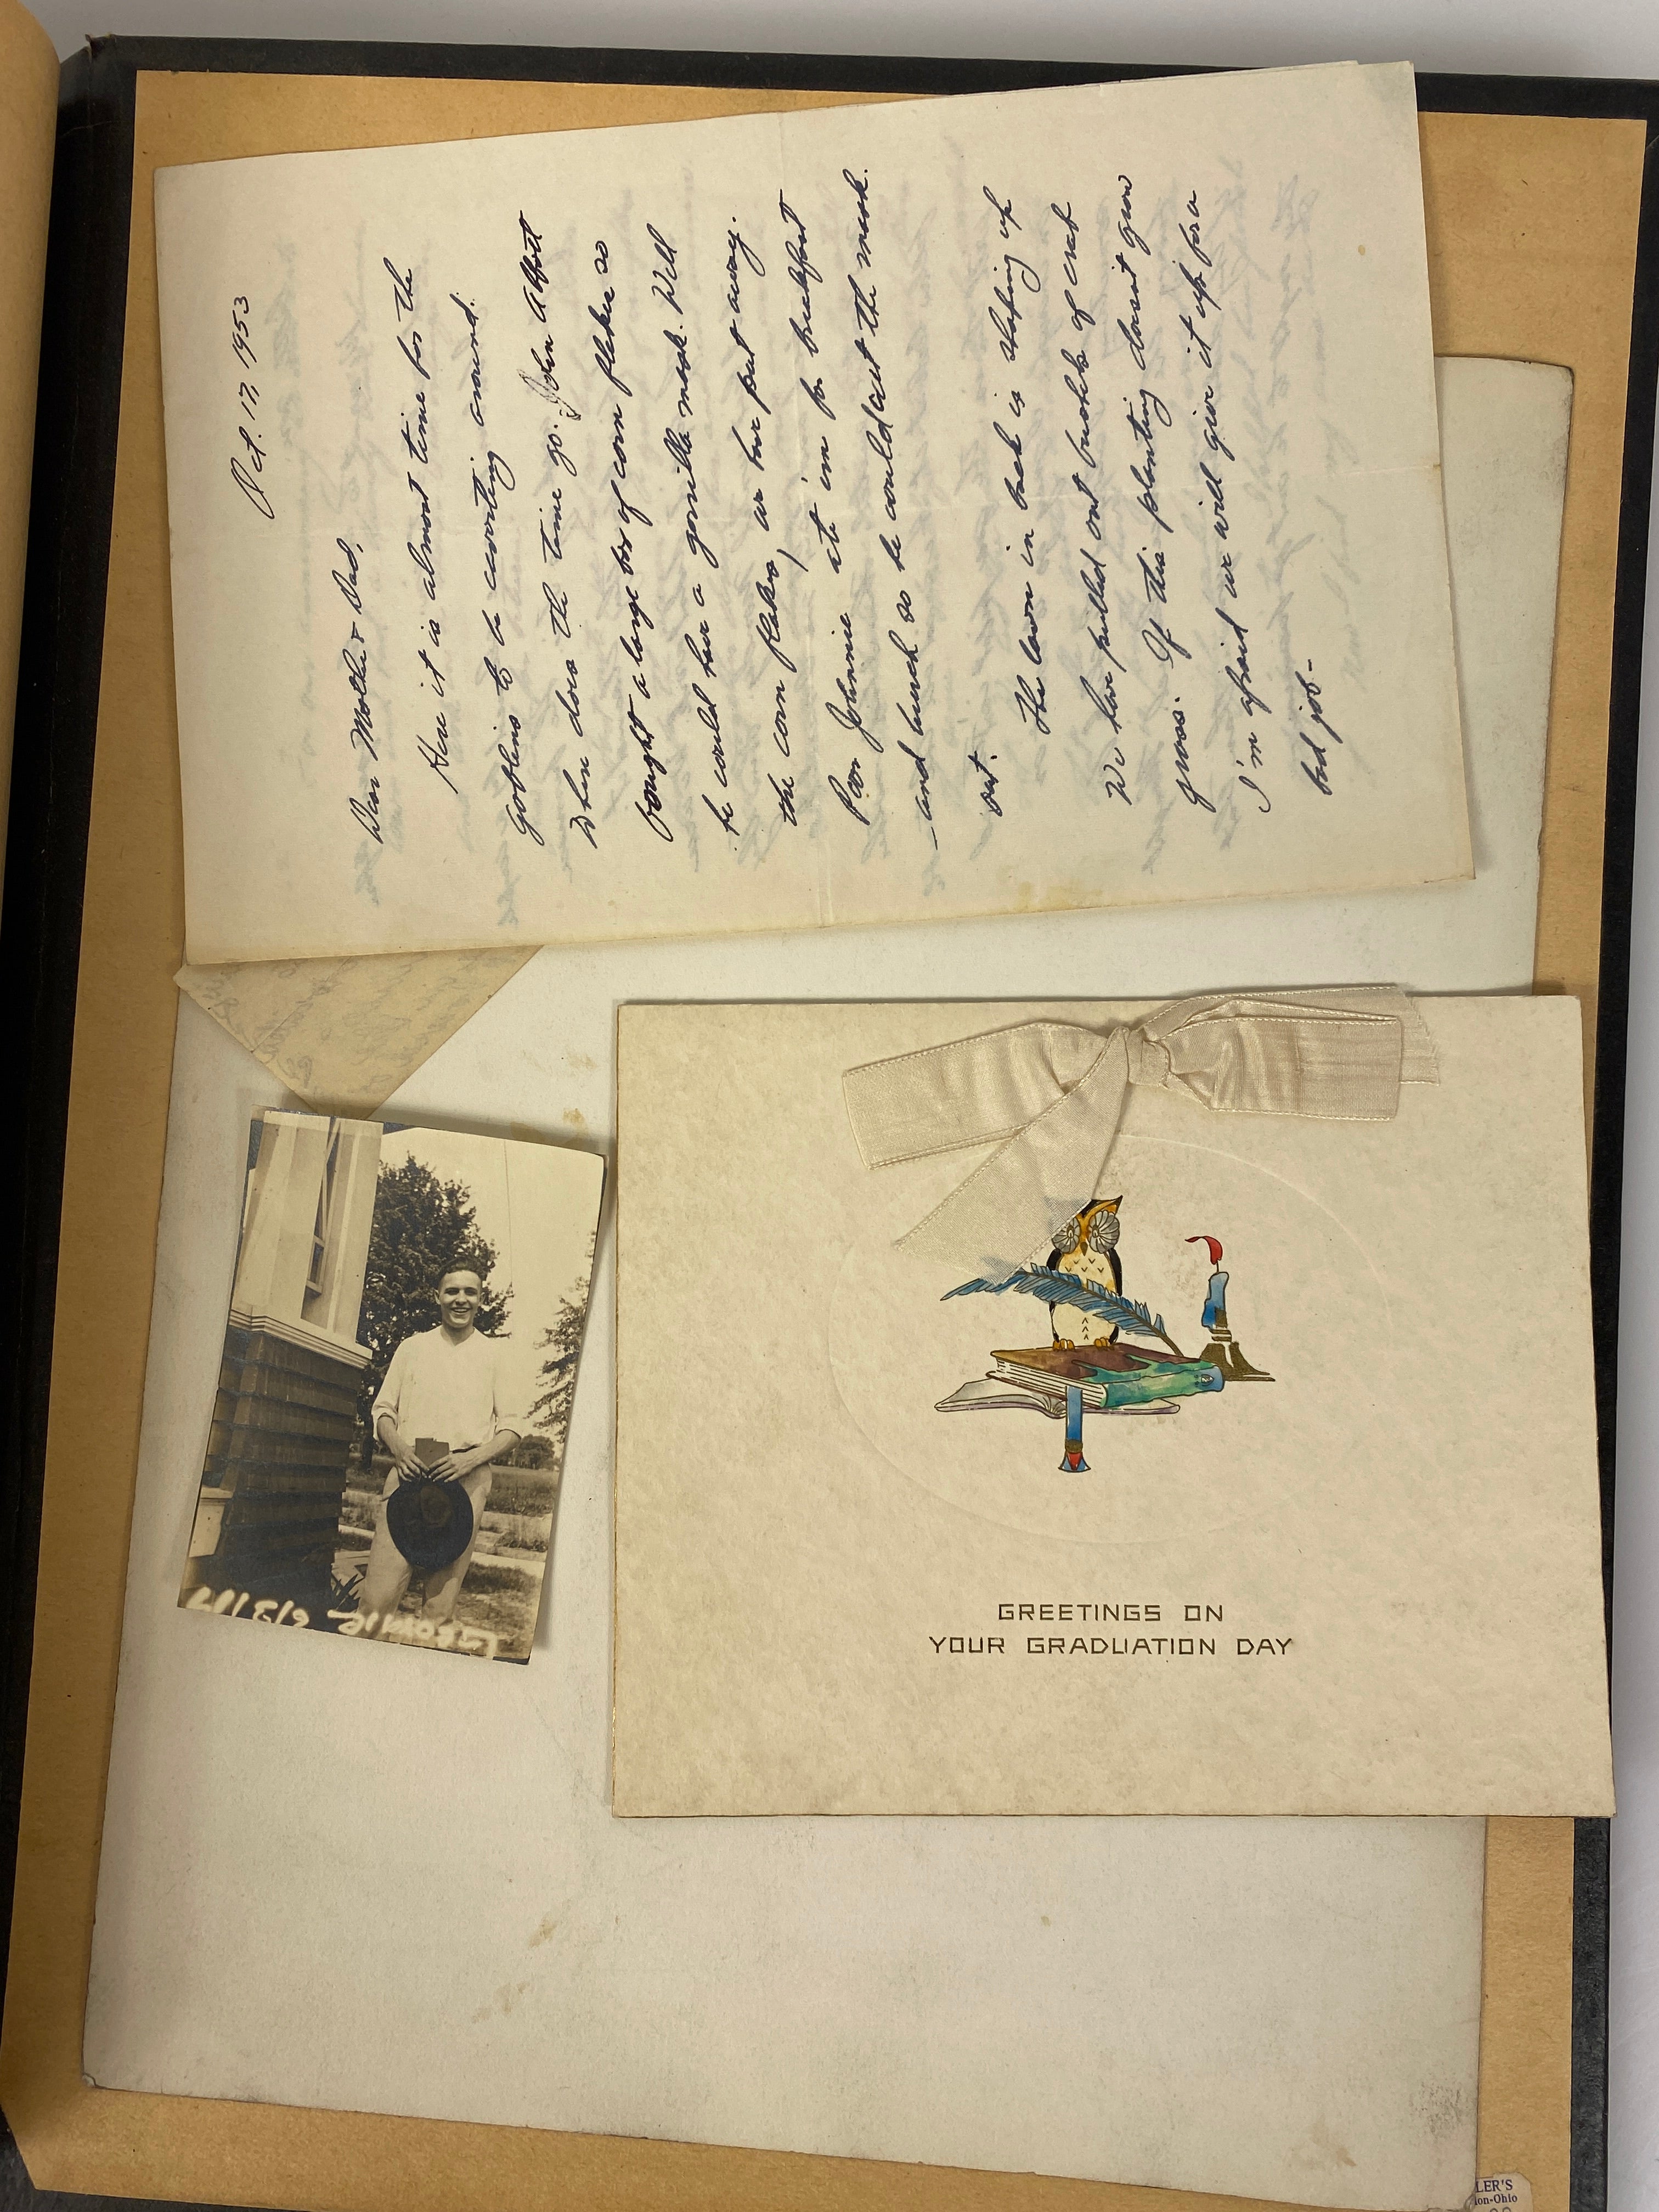 Oct. 17, 1953
Dear Mother & Dad,
Here it is almost time for the
goblins to be cavorting around.
Where does the time go. John Abbott
bought a large box of corn flakes so
he could have a gorilla mask. Well
the corn flakes, we have put away.
Poor Johnnie ate 'im for breakfast
and lunch so he could cut the mask
out.
The lawn in back is shaping up
We have pulled out bushels of crab
grass. If this planting doesn't grow
I'm afraid we will give it up for a
bad job-
GREETINGS ON
YOUR GRADUATION DAY
LER'S
ion-Ohio